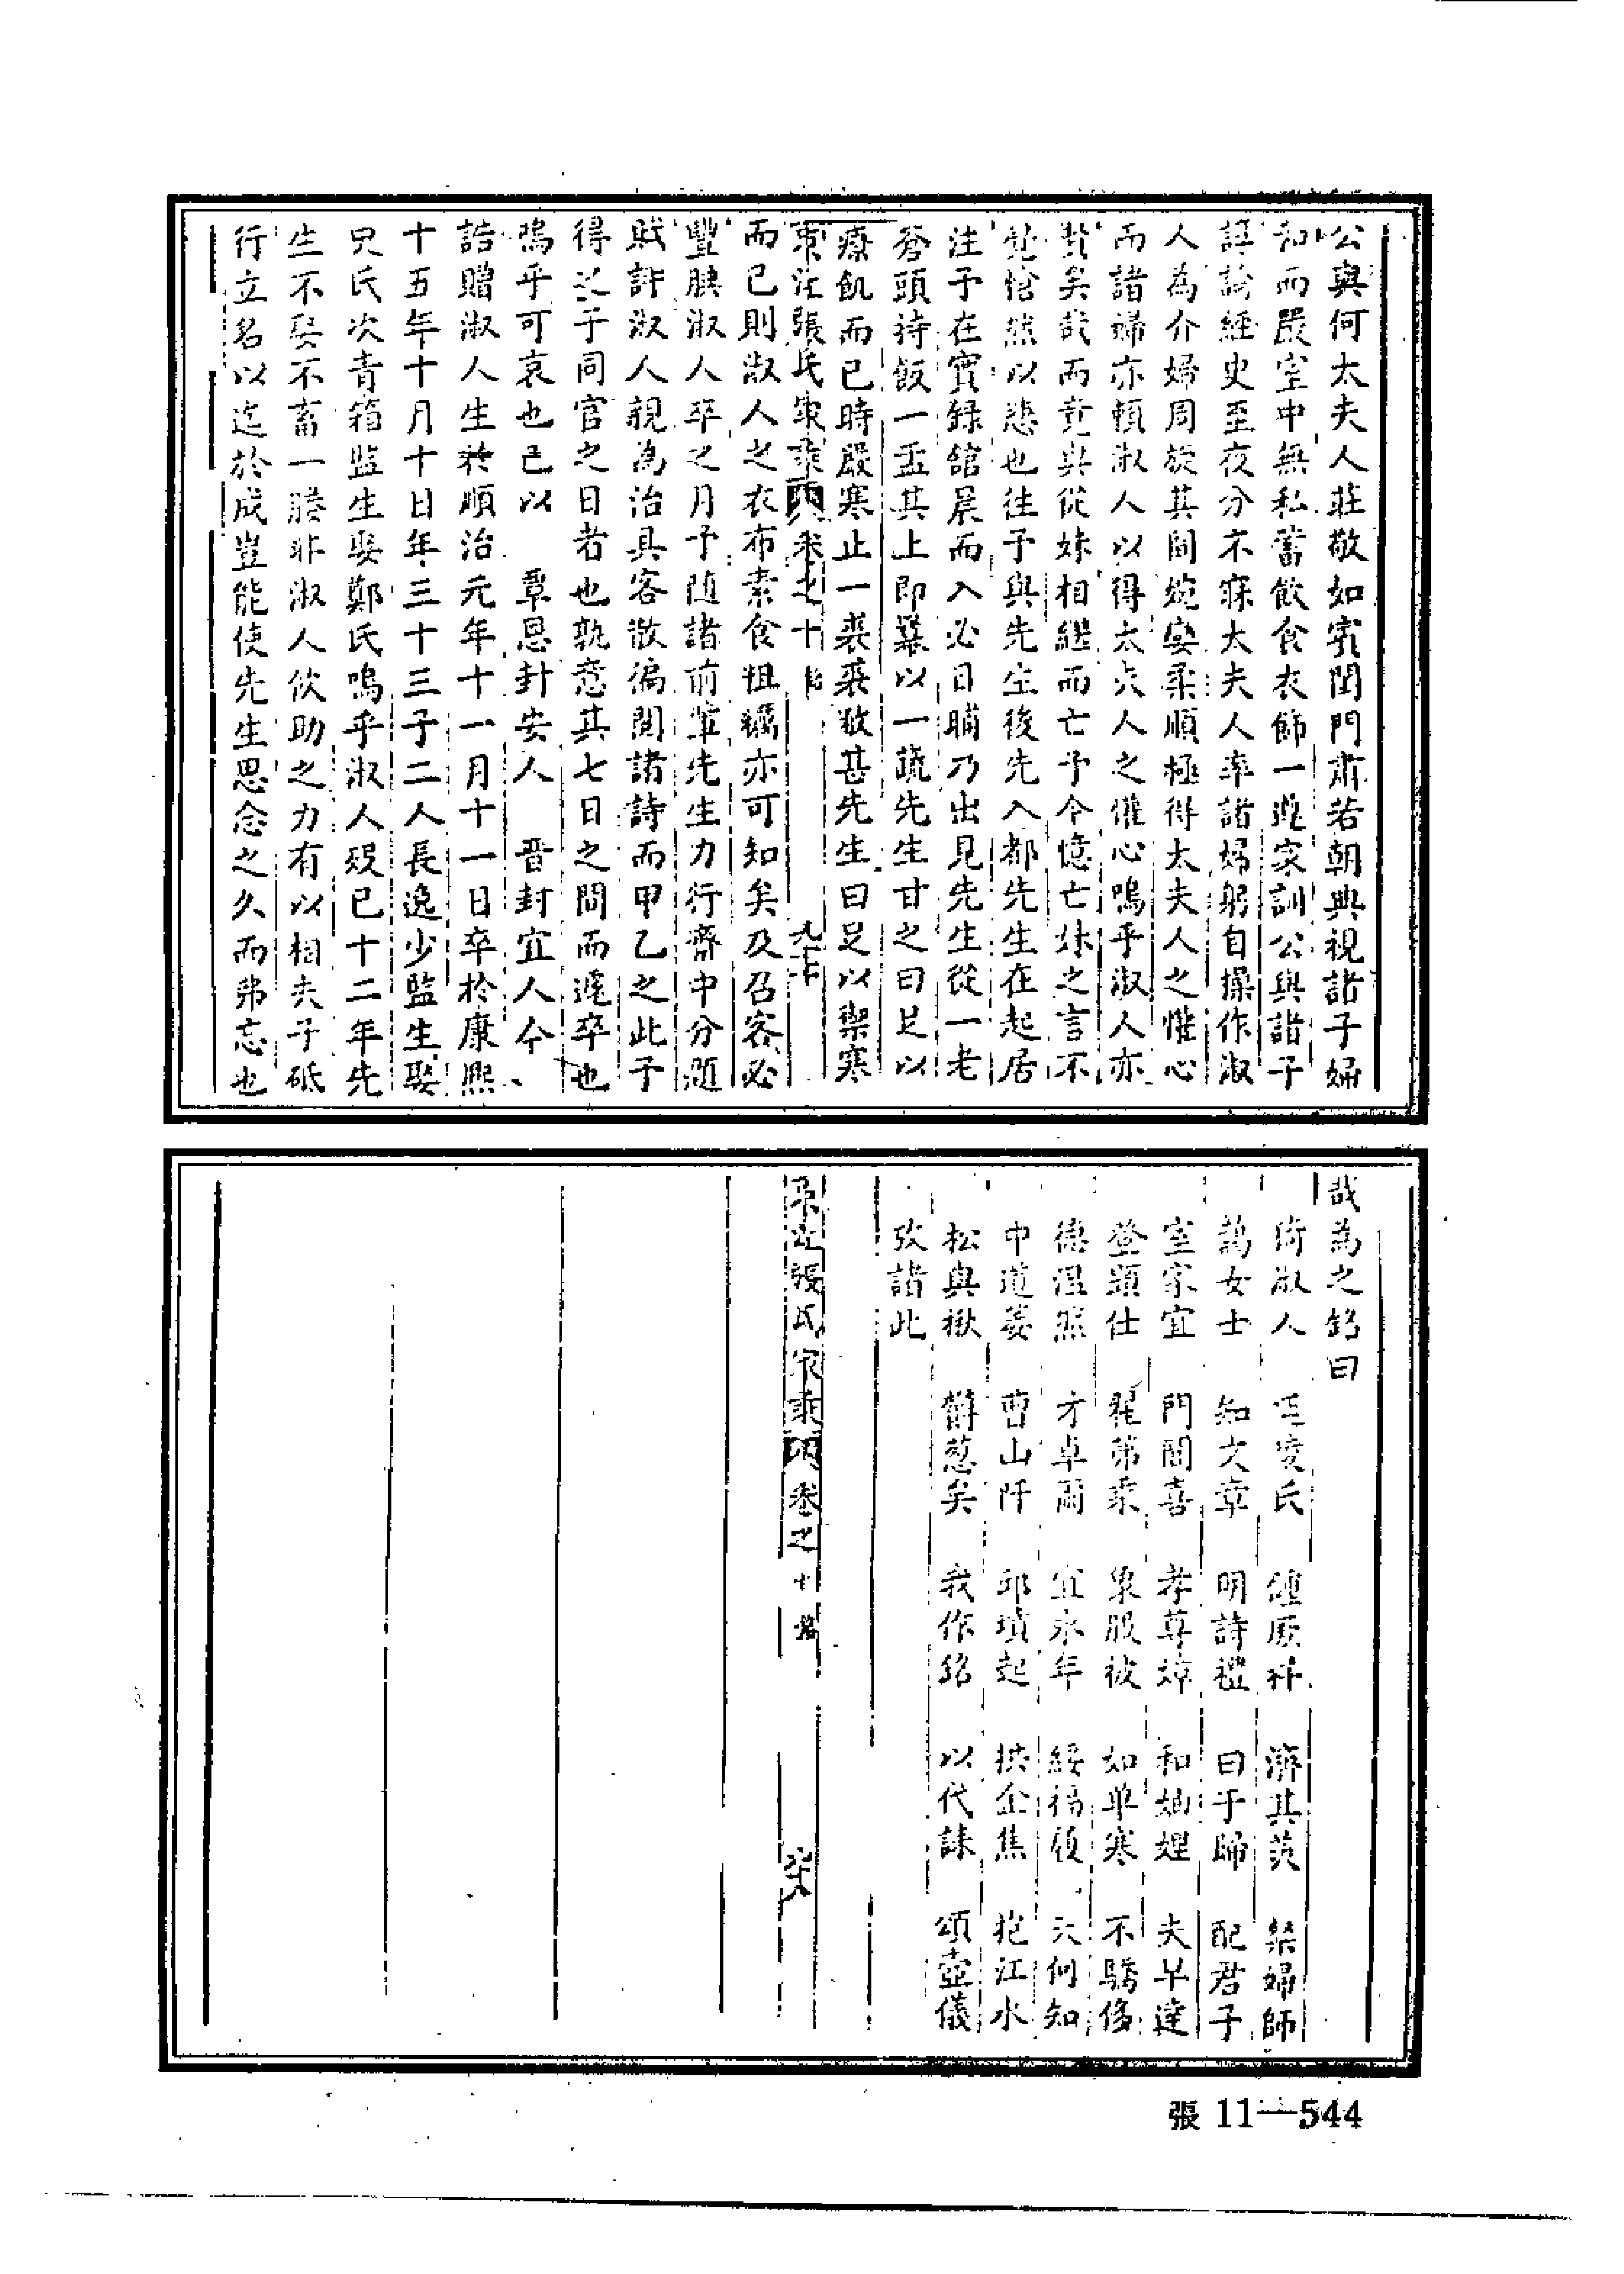 公與何太夫人莊敬如賓閨門肅若朝典視諸子婦
和而嚴室中無私蓄飲食衣飾一遵家訓公與諸子
評論經史至夜分不寐太夫人率諸婦躬自操作淑
人為介婦周旋其間婉娈柔順極得太夫人之懽心
而諸婦亦賴淑人以得太夫人之懽心嗚乎淑人亦
賢矣哉而竟與從妹相繼而亡予今憶亡妹之言不
覺愴然以悲也往予與先生後先入都先生在起居
注予在實錄館晨而入必日晡乃出見先生從一老
蒼頭持飯一盂其上即羃以一蔬先生甘之曰足以
療飢而已時嚴寒止一裘裘敝甚先生曰足以禦寒
東江張氏家乘丙卷之十 九十七
而已則淑人之衣布素食粗糲亦可知矣及召客必
豐腆淑人卒之月予隨諸前輩先生力行齋中分題
賦詩淑人親為治具客散徧閱諸詩而甲乙之此予
得之于同官之日者也孰意其七日之間而遽卒也
嗚乎可哀也已以 覃恩封安人 晉封宜人今
誥贈淑人生於順治元年十一月十一日卒於康熙
十五年十月十日年三十三子二人長逸少監生娶
吳氏次青箱監生娶鄭氏嗚乎淑人歿已十二年先
生不娶不畜一媵非淑人佽助之力有以相夫子砥
行立名以迄於成豈能使先生思念之久而弗忘也
哉為之銘曰
淑人 氏 厥 濟其美 婦師
女士 知文章 明詩禮 曰于歸 配君子
室家宜 門閭喜 孝尊嫜 和妯娌 夫早達
登顯仕 翟茀乘 象服被 如單寒 不驕侈
德溫然 才卓爾 宜永年 綏福履 天何知
中道萎 曹山阡 邱墳起 拱金焦 抱江水
松與楸 鬱葱矣 我作銘 以代誄 頌壼儀
攷諸此
東江張氏家乘丙卷之十 九十八
張 11—544